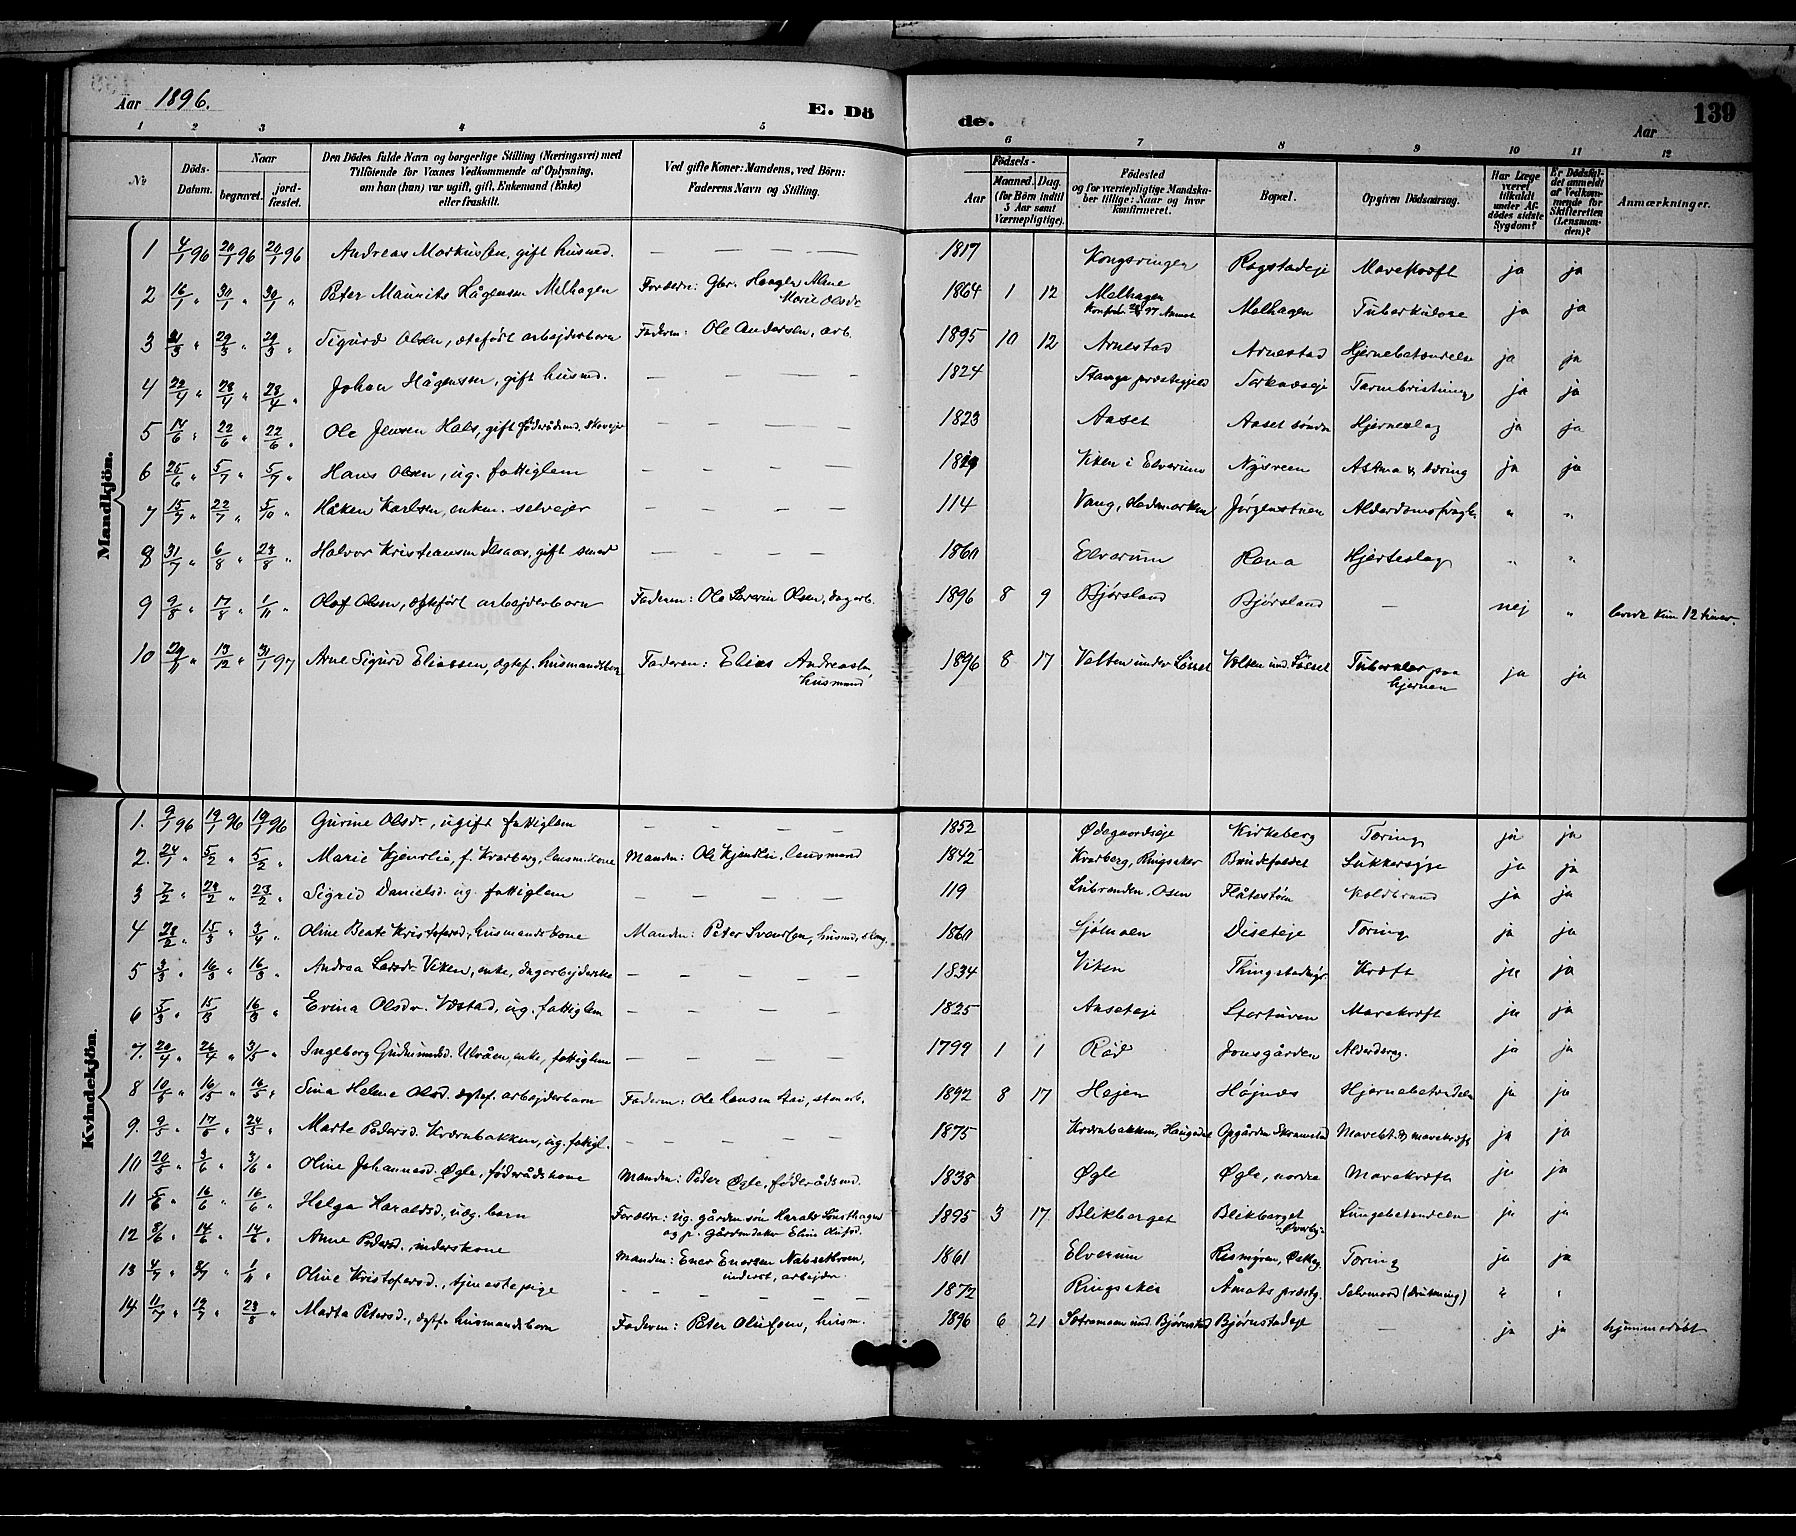 Aar 1896. E. Dö de. Aar 139
1 2 3 4 5 6 7 8 9 10 11 12
No Döds-Datum. Naar begravet. jord-fæstet. Den Dödes fulde Navn og borgerlige Stilling (Næringsvei) med Tilföiende for Voxnes Vedkommende af Oplysning, om han (hun) var ugift, gift, Enkemand (Enke) eller fraskilt. Ved gifte Koner: Mandens, ved Börn: Faderens Navn og Stilling. Födsels- Aar Maaned. Dag. (for Börn indtil 5 Aar samt Værnepligtige). Födested og for værnepligtige Mandskaber tillige: Naar og hvor konfirmeret. Bopæl. Opgiven Dödsaarsag. Har Læge været tilkaldt under Afdödes sidste Sygdom? Er Dödsfaldet anmeldt af Vedkommende for Skifteretten (Lensmanden)? Anmærkninger.
Mandkjön.
1 4/1 96 20/1 96 20/1 96 Andreas Markussen, gift husmd. — — — 1817 Kongsringen Rogstadeje Mavekræft ja ja
2 16/1 " 30/1 " 30/1 " Peter Maurits Hågensen Melhagen Forældre: Gbr. Haagen Marie Olsdr. 1864 1 12 Melhagen Melhagen Tuberkulose ja ja
3 21/3 " 29/3 " 29/3 " Sigurd Olsen, ægteført arbejderbarn Faderen: Ole Andersen, arb. 1895 10 12 Arnestad Arnestad Hjernebetændelse ja ja
4 22/4 " 28/4 " 28/4 " Johan Hågensen, gift husmd. — — — — 1824 Stange præstegjeld Torknæseje Tarmbristning ja ja
5 17/6 " 22/6 " 22/6 " Ole Jensen Hals, gift føderådsmd. — — — — 1823 Aaset Aaset søndre Hjerneslag ja ja
6 25/6 " 5/7 " 5/7 " Hans Olsen, ug. fattiglem — — — — 1819 Viken i Elverum Nysveen Astma & tæring ja ja
7 15/7 " 22/7 " 5/10 " Håken Karlsen, enkem. selvejer — — — — 114 Vang, Hedemarken Jørgenstuen Alderdomssvaghed " "
8 31/7 " 6/8 " 23/8 " Halvor Kristiansen gift smed — — — — 1860 Elverum Rena Hjerteslag " "
9 9/8 " 17/8 " 1/11 " Olaf Olsen, ægteført arbejderbarn Faderen: Ole Severin Olsen, dagarb. 1896 8 9 Bjørsland Bjørsland — nej " levede kun 12 timer.
10 29/11 " 13/12 " 31/1 97 Arne Sigurd Eliassen, ægtef. husmandsbarn Faderen: Elias Andreassen husmand 1896 8 17 Velten under Løsset Velten und. Løsset Tuberkler paa hjernen ja ja
Kvindekjön.
1. 9/1 96 19/1 96 19/1 96 Gurine Olsdr., ugift fattiglem — — — — 1852 Ødegaardseje Kirkeberg Tæring ja ja
2. 24/1 " 5/2 " 5/2 " Marie Kjenrlie, f. Kvarberg, lensmdkone Manden: Ole Kjendlie, lensmand 1842 Kvarberg, Ringsaker Bundefaldet Sukkersyge ja ja
3 7/2 " 23/2 " 23/2 " Sigrid Danielsd. ug. fattiglem — — — — 119 Osen Flåtestøen Koldbrand ja ja
4 28/2 " 15/3 " 3/4 " Oline Beate Kristofersd., husmandskone Manden: Peter Svendsen, husmd. 1860 Sjølmoen Diseteje Tæring ja ja
5 3/3 " 16/3 " 16/3 " Andrea Larsdr. Viken, enke, dagarbejderske — — — — 1834 Viken Thingstadeje Kræft ja ja
6 5/3 " 15/3 16/3 " Evina Olsdr. Væstad, ug. fattiglem — — — — 1825 Aaseteje Stortuven Mavekræft ja ja
7. 20/4 " 26/4 " 3/5 " Ingeborg Gudmundsd. Ulvåen, enke, fattiglem — — — — 1799 1 1 Rød Jonsgården Alderdsvag. ja ja
8 10/5 " 16/5 " 16/5 " Sina Helene Olsd. ægtef. arbejderbarn Faderen: Ole Hansen 1892 8 17 Højen Højnæs Hjernebetændelse ja ja
9. 9/5 " 17/5 " 24/5 " Marte Pedersd. Kværnbakken, ug. fattigl. — — — — 1875 Kværnbakken, Opgården Skramstad ja ja
10 20/5 " 3/6 " 3/6 " Oline Johannesd. Øgle, føderådskone Manden: Peder Øgle, føderådsmd. 1838 Øgle Øgle, nordre Mavekræft ja ja
11 5/6 " 16/6 " 16/6 " Helga Haraldsd., uæg. barn Forældre: ug. gårdmsøn Harald og p. gårdmdatter Eline Olufsd. 1895 3 17 Blikberget Blikberget Lungebetændelse ja ja
12 8/6 " 14/6 " 14/6 " Anne Pedersd. inderstkone Manden: Ener Enersen inderst, arbejder. 1861 Elverum Rismyren, Tæring ja ja
13 4/7 " 8/7 " 1/11 " Oline Kristofersd., tjenestepige — — — — 1872 Ringsaker Åmots præstg. Selvmord (drukning) " "
14 11/7 " 19/7 " 23/8 " Marta Petersd., ægtef. husmandsbarn Faderen: Peter Olufsen, husm. 1896 6 21 und. Bjørnstad Bjørnstadeje — ja ja hjemmedøbt